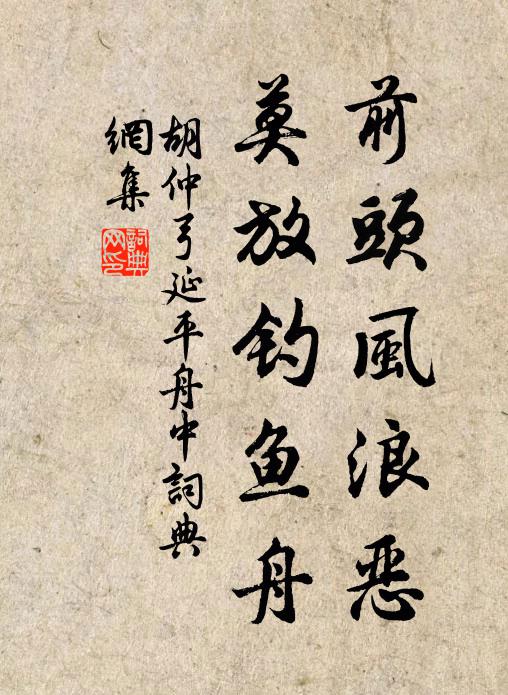 前頭風浪恶
莫放钓鱼舟
胡仲弓延平舟中詞典
網集
詞典
网印